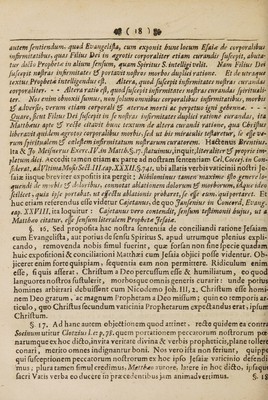 ( 18 )
autem sentiendum. quod Evangelista, cum exponit hunc locum Esaiæ de corporalibus
infirmitatibus, quas Filius Dei in ægrotis corporaliter etiam curandis suscepit, abuta-
tur dicto Prophetæ in alium sensum, quam Spiritus S. intelligi velit. Nam Filius Dei
suscepit nostras infirmitates & portavit nostros morbos duplici ratione. Et de utraque
textus Prophetæ intelligendus est. Altera, quod suscepit infirmitates nostras curandas
corporaliter. -- Altera ratio est, quod suscepit infirmitates nostras curandas spirituali-
ter. Nos enim obnoxii sumus, non solum omnibus corporalibus infirmitatibus, morbis
& adversis, verum etiam corporali & æternæ morti ac perpetuo igni gehennæ. ---
Quare, sicut Filius Dei suscepit in se nostras infirmitates duplici ratione curandas, ita
Matthæus apte & recte citavit hunc textum de altera curandi ratione, qua Christus
liberavit quidem ægrotos corporalibus morbis, sed ut his miraculis testaretur, se esse ve-
rum spiritualem & cœlestem infirmitatum nostrarum curatorem. Hactenus Brentius.
ita & Jo. Molnerus Exerc. IV. in Matth. §. 17. statutum, inquit, litteraliter & proprie im-
pletum dici. Accedit tamen etiam ex parte ad nostram sententiam Cel. Coccej. in Con-
siderat. ad Ultima Mosis Sect. III. cap. XXXII. §. 741. ubi alia vatis verbis vaticinii nostri ja-
siæ insignior breviter exponens eam ait: Nihilominus tamen maxime illa genera lo-
quendi de morbis & doloribus, connotat alienationem dolorum & morborum, idque id eo
scilicet, quia ipse portabat. ut effectu ablationis probaret, se esse eum, qui portaret. Et
huc etiam referendus esse videtur Cajetanus, de quo Jansenius in Concord. Evang.
cap. XXVIII, ita loquitur: Cajetanus vero contendit, sensum testimonii hujus, ut a
Matthæo citatur, esse sensum literalem Prophetæ Jesaiæ.
§. 16. Sed proposita hac nostra sententia de conciliandi ratione Jesaiam
cum Evangelista, aut potius de sensu Spiritus S. apud utrumque plenius expli-
cando, removenda nobis simul fuerint, quæ forsan non sine specie quadam
huic expositioni & conciliationi Matthæi cum Jesaia objici posse videntur. Ob-
licerent enim forte quispiam, sequentia eam non permittere. Ridiculum enim
esse, si quis asserat. Christum a Deo percussum esse & humiliatum, eo quod
languores nostros sustulerit, morbosque omnis generis curarit: unde potius
homines arbitrari debuissent cum Nicodemo Joh. III, 2. Christum esse homi-
nem Deo gratum, ac magnum Prophetam a Deo missum; quin eo temporis ar-
ticulo, quo Christus secundum vaticinia Prophetarum exspectandus erat, ipsum
Christum.
§. 17. Ad hanc autem objectionem quod attinet. recte quidem ea contra
Socinum utitur Clotzius l. c. p. 78. quem portationem peccatorum nostrorum pœ-
narumque ex hoc dicto, invita veritate divina & verbis propheticis, plane tollere
conari, merito omnes indignantur boni. Nos vero ista non feriunt, quippe
qui susceptionem peccatorum nostrorum ex hoc ipso Jesaiæ vaticinio defendi-
mus; plura tamen simul credimus, Matthæo autore, latere in hoc dicto, ipsaque
sacri Vatis verba eo ducere in præcedentibus jam animadvertimus.
§. 18